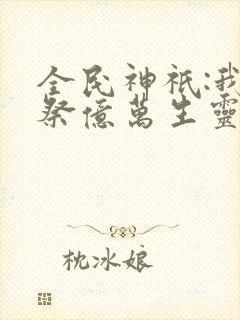 全民神祇:我
祭億萬生靈
枕冰娘